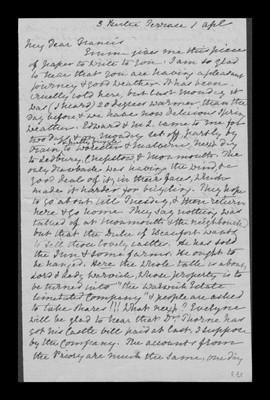 3 Hertie Terrace 1 Apl
My Dear Francis
Emma gives me this piece
of Paper to write to you. I am so glad
to hear that you are having a pleasant
journey & good weather. It has been
cruelly cold here, but last Monday it
was (I heard) 20 degrees warmer than the
day before & we have some delicious Spring
weather. Edward & M.L. came to me for
two days & on Monday set off partly by
train, to Worcester & Malvern, next day
to Ledbury, Chepstow & Monmouth. The
only drawback was having the wind a
good deal of it, in their faces, which
made it harder for bicycling. They hope
to go about till Tuesday, & then return
here & go home. They say nothing was
talked of at Monmouth & the neighbourhood
but that the Duke of Beaufort wants
to sell those lovely castles. He has sold
the Inn & some farms. He ought to
be hanged. Here the whole talk is about
Lord & Lady Warwick, whose property is to
be turned into "the Warwick Estate
Limited Company" & people are asked
to take shares!!! What next? Evelyne
will be glad to hear that Dr. Thorne has
got his Castle bill paid at last, I suppose
by the Company. The accounts from
the Priory are much the same, one day